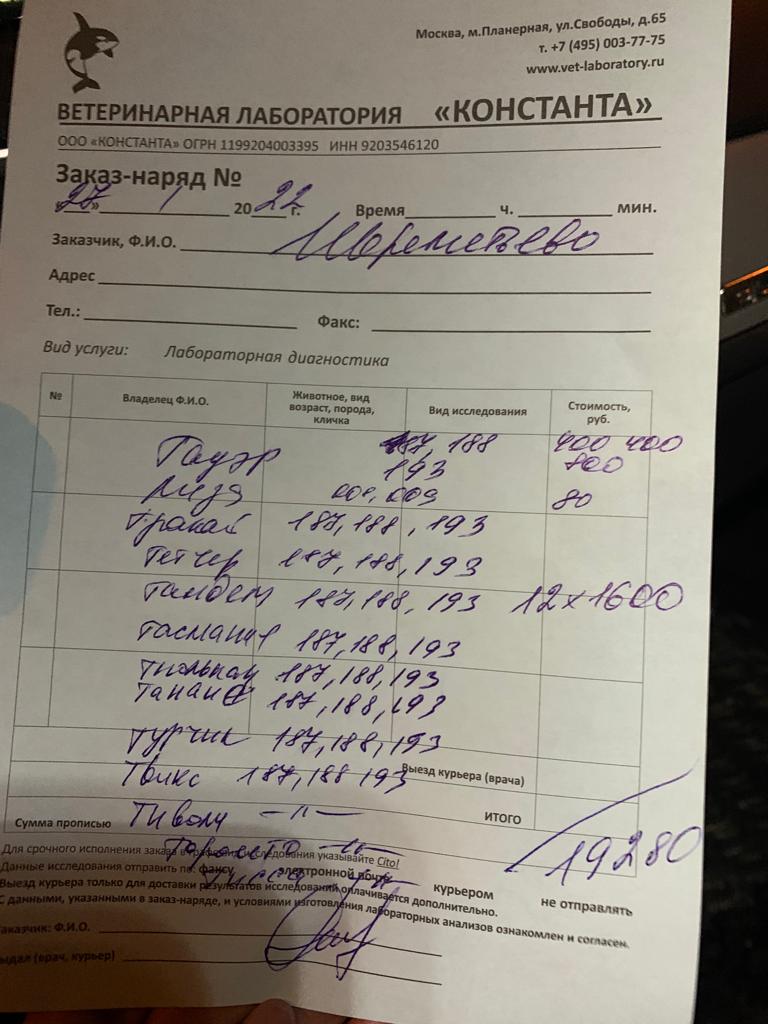 Москва, м.Планерная, ул.Свободы, д.65
т. +7 (495) 003-77-75
www.vet-laboratory.ru
ВЕТЕРИНАРНАЯ ЛАБОРАТОРИЯ «КОНСТАНТА»
ООО «КОНСТАНТА» ОГРН 1199204003395 ИНН 9203546120
Заказ-наряд №
«27» 1 2022г. Время ч. мин.
Заказчик, Ф.И.О. Шереметьево
Адрес
Тел.: Факс:
Вид услуги: Лабораторная диагностика
№ Владелец Ф.И.О. Животное, вид возраст, порода, кличка Вид исследования Стоимость, руб.
Тауэр 187, 188 400 400
193 800
008, 009 80
Тракай 187, 188, 193
Тетчер 187, 188, 193
Тандем 187, 188, 193 12×1600
Тасмания 187, 188, 193
187, 188, 193
187, 188, 193
Турчик 187, 188, 193
Твикс 187, 188 193 Выезд курьера (врача)
Тиволи —〃— ИТОГО
Сумма прописью
19280
Для срочного исполнения заказа в графе вид исследования указывайте Cito!
Данные исследования отправить по: факсу электронной почте курьером не отправлять
Выезд курьера только для доставки результатов исследований оплачивается дополнительно.
С данными, указанными в заказ-наряде, и условиями изготовления лабораторных анализов ознакомлен и согласен.
Заказчик: Ф.И.О.
выдал (врач, курьер)